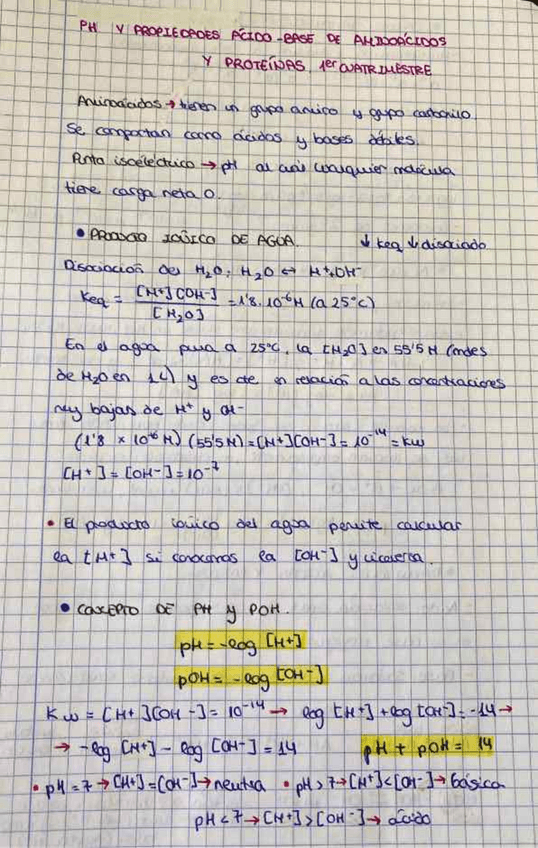 PH Y PROPIEDADES ÁCIDO-BASE DE AMINOÁCIDOS
Y PROTEÍNAS. 1er CUATRIMESTRE
Aminoácidos → tienen un grupo amino y grupo carbonilo.
Se comportan como ácidos y bases débiles.
Punto isoeléctrico → pH al cual cualquier molécula
tiene carga neta 0.
• PRODUCTO IÓNICO DE AGUA. ↓ Keq ↓ disociado
Disociación del H₂O: H₂O ↔ H⁺+OH⁻
Keq = [H+][OH-] / [H₂O] = 1'8·10⁻⁶M (a 25°C)
En el agua pura a 25°C, la [H₂O] es 55'5 M (moles
de H₂O en 1L) y es cte en relación a las concentraciones
muy bajas de H⁺ y OH-
(1'8 × 10⁻⁶ M) (55'5M) = [H+][OH-] = 10⁻¹⁴ = Kw
[H+] = [OH-] = 10⁻⁷
• El producto iónico del agua permite calcular
la [H+] si conocemos la [OH-] y viceversa.
• CONCEPTO DE PH y POH.
pH = -log [H+]
pOH = -log [OH-]
Kw = [H+][OH-] = 10⁻¹⁴ → log [H+] + log [OH-] = -14 →
→ -log [H+] - log [OH-] = 14 pH + pOH = 14
• pH = 7 → [H+] = [OH-] → neutra • pH > 7 → [H+] < [OH-] → básica
pH < 7 → [H+] > [OH-] → ácido